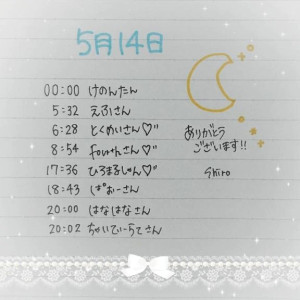 5月14日
00:00 けのんたん
5:32 えふさん
6:28 とくめいさん♡"
8:54 fourthさん♡"
17:36 ひろまるしゃん♡"
18:43 ぱおーさん
20:00 はなはなさん
20:02 ちゃいてぃーらてさん
ありがとう
ございます!!
shiro